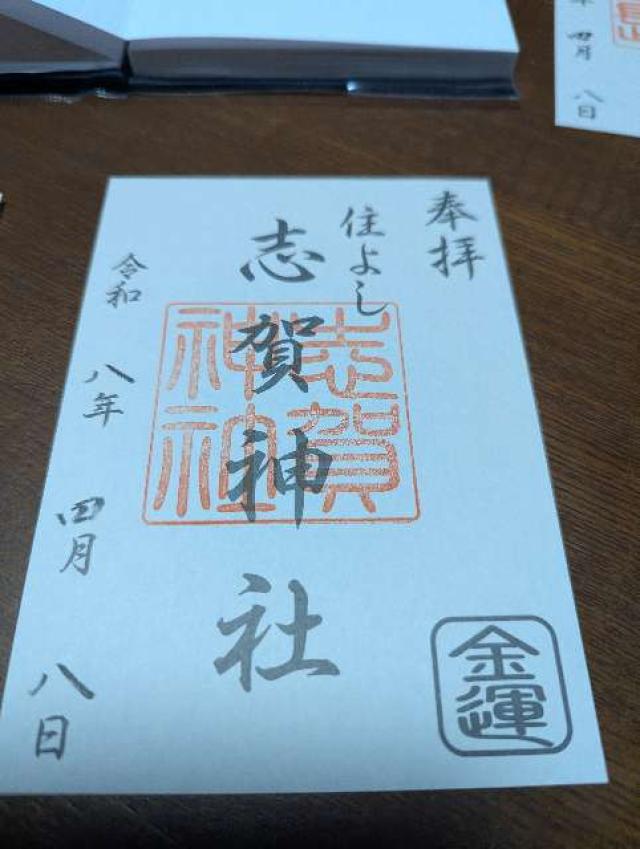 奉拝
住よし
志賀神社
志賀
神社
令和 八年 四月 八日
金運
年 四月 八日